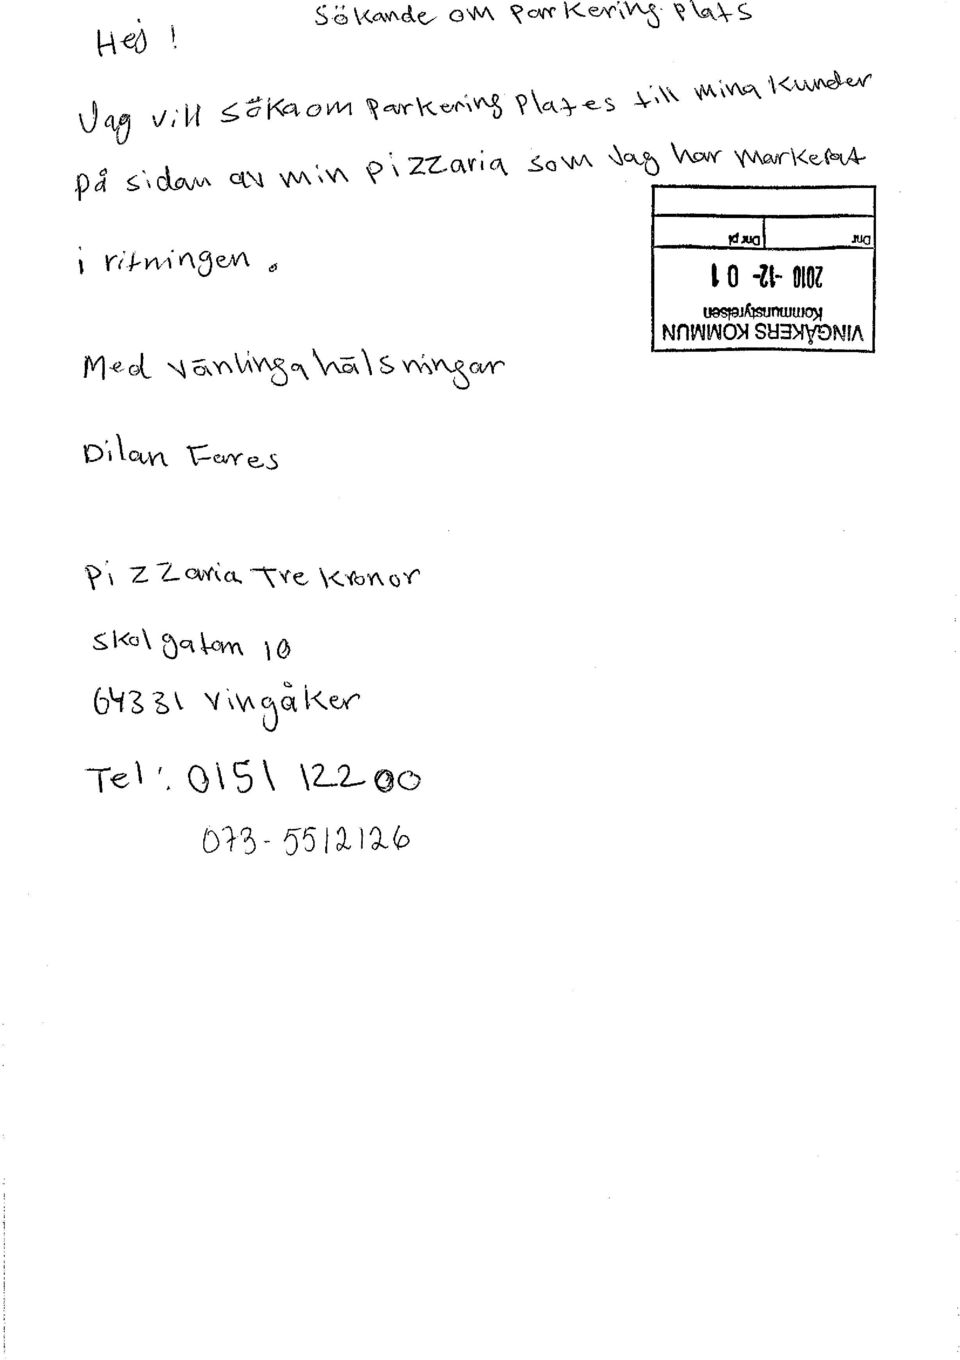 Sökande om parkering plats
Hej !
Jag vill söka om parkering plates till mina kunder
på sidan av min pizzaria som Jag har markerat
i ritningen.
VINGÅKERS KOMMUN
Kommunstyrelsen
2010 -12- 01
Dnr Dnr pl
Med vänlinga hälsningar
Dilan Fares
Pizzaria Tre kronor
skolgatan 10
64331 vingåker
Tel: 0151 12200
073-5512126